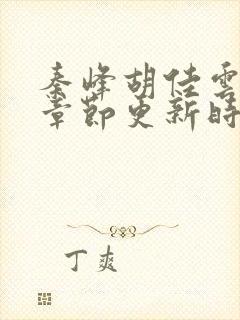 秦峰胡佳雲
章節更新時
丁爽